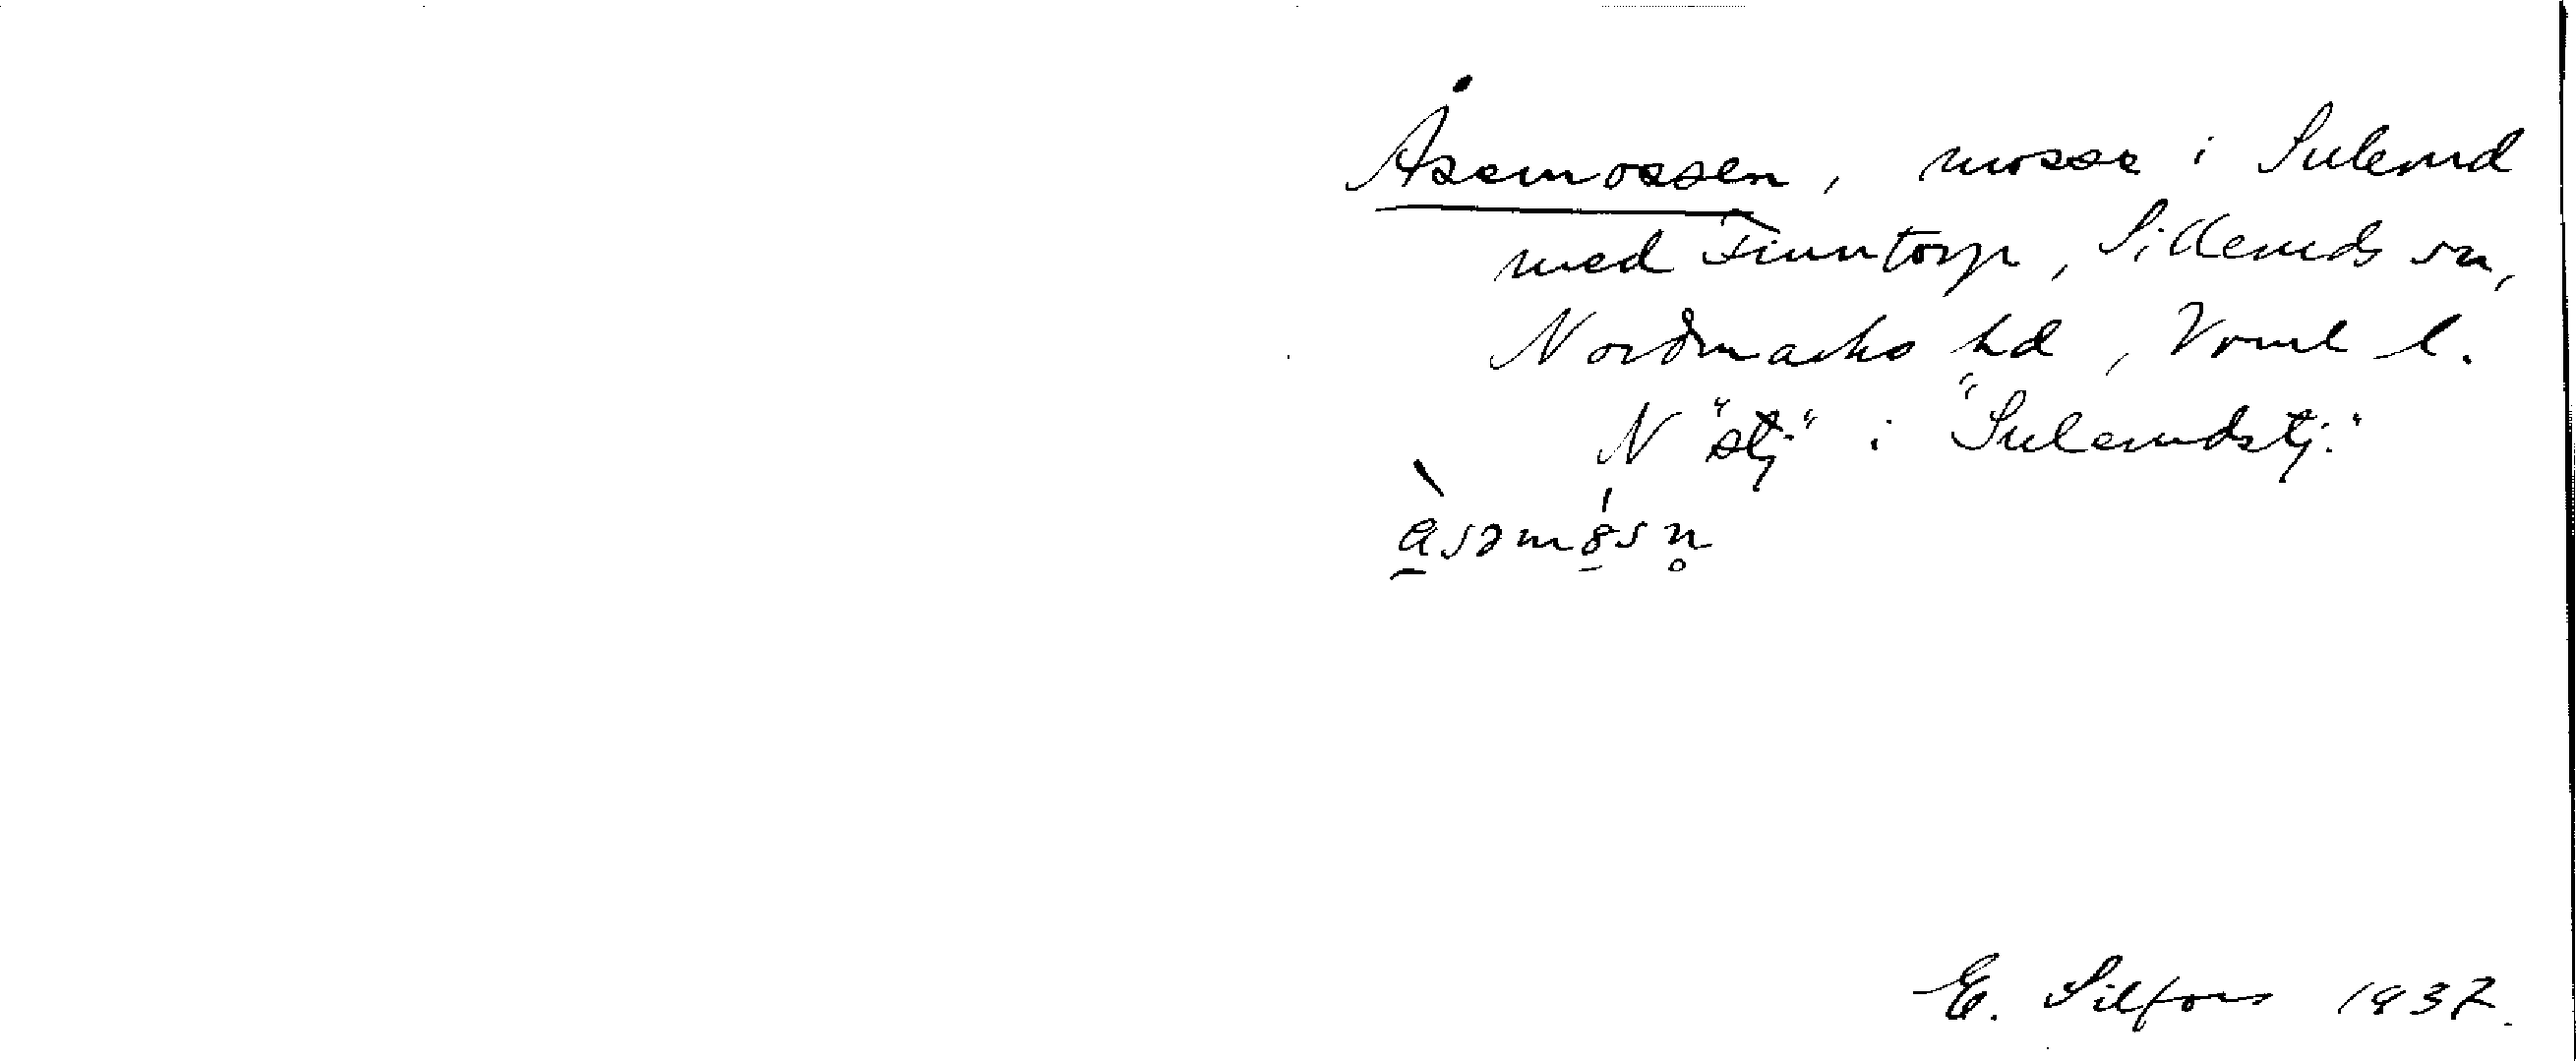 Åsemossen, mosse i Sulerud
med Finntorp, Silleruds sn,
Nordmarks hd, Vrml l.
N "stj" i "Sulerudstj."
a̠̔̀səmós̠n̥
E. Silfors 1937.